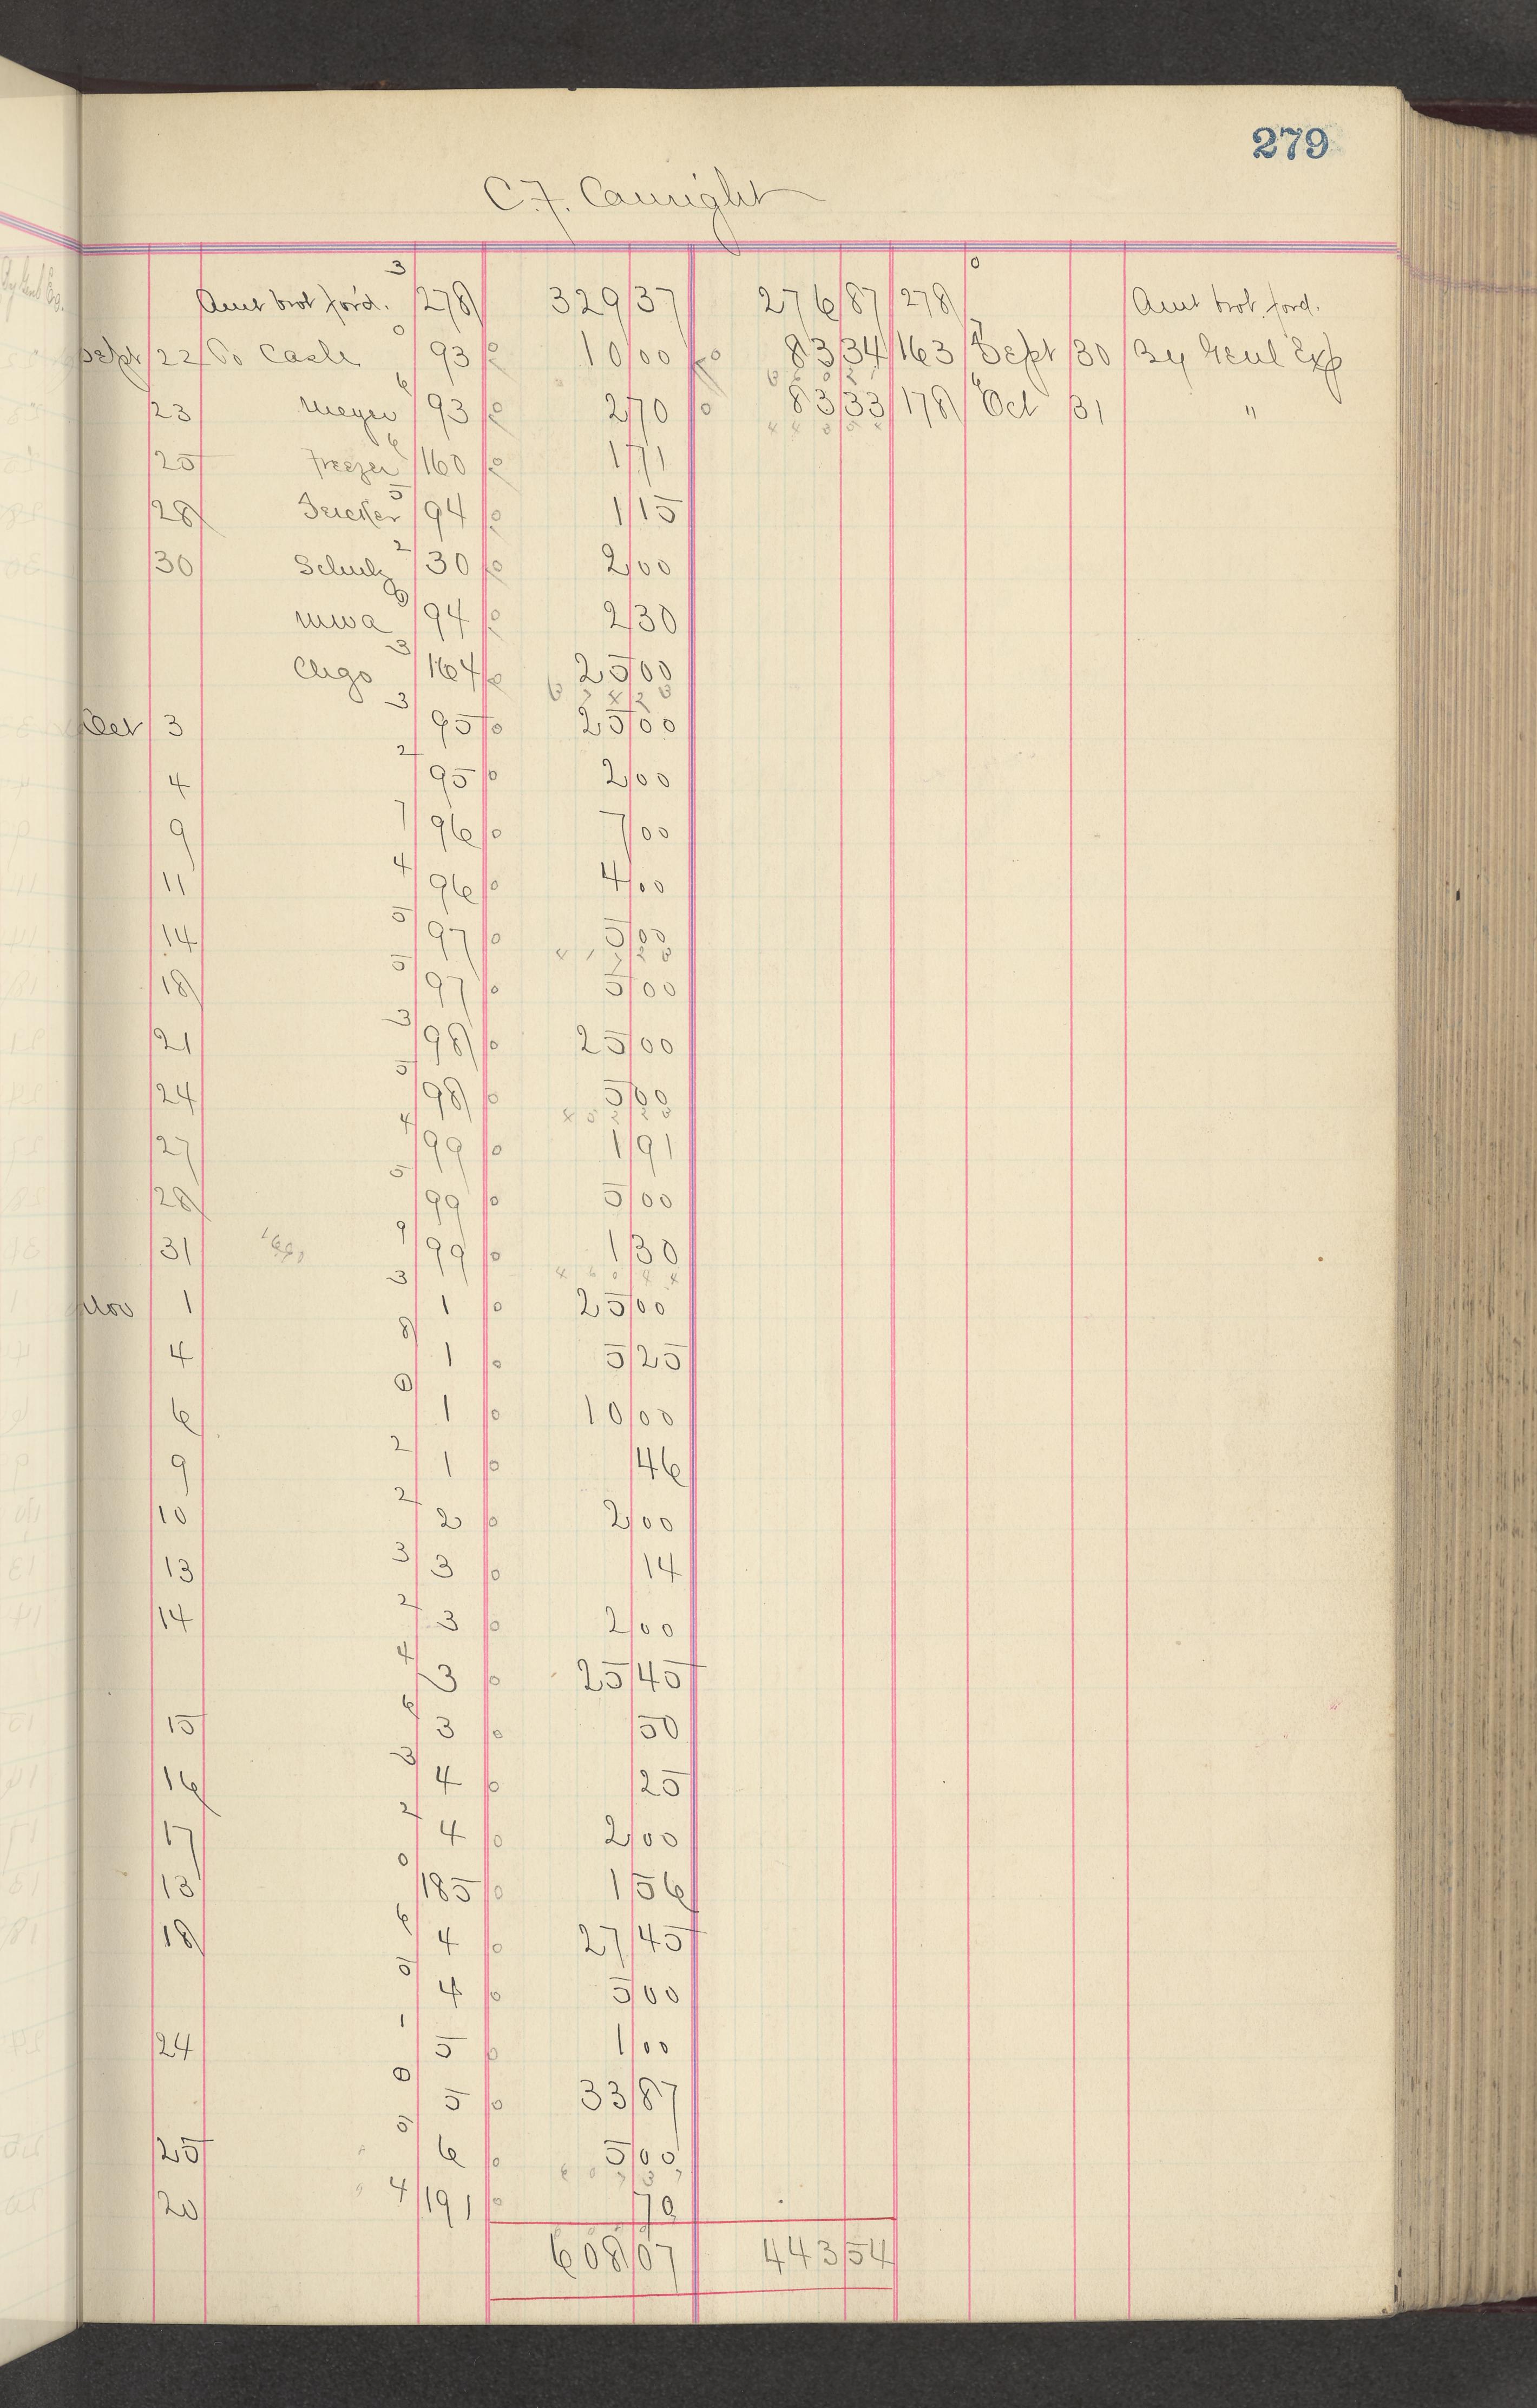 279
C.F. Cauright
3 0
Amt brot ford. 278 329 37 276 87 278 Amt brot ford.
Sept 22 To Cash 0 93 10 00 83 34 163 Sept 30 By Genl Exp
23 Meyer 6 93 2 70 83 33 178 Oct 31 "
25 Freezer 6 160 1 71
28 5 94 1 15
30 Schulz 2 30 2 00
MWA 94 2 30
Chgo 3 164 25 00
Oct 3 3 95 25 00
4 2 95 2 00
9 7 96 7 00
11 4 96 4 00
14 5 97 5 00
18 5 97 5 00
21 3 98 25 00
24 5 98 5 00
27 4 99 1 91
28 5 99 5 00
31 9 99 1 30
Nov 1 3 1 25 00
4 8 1 5 25
6 0 1 10 00
9 2 1 46
10 2 2 2 00
13 3 3 14
14 2 3 2 00
4 3 25 45
15 6 3 50
16 3 4 25
17 2 4 2 00
13 0 185 1 56
18 6 4 27 45
5 4 5 00
24 1 5 1 00
0 5 33 87
25 5 6 5 00
20 4 191 70
608 07 443 54